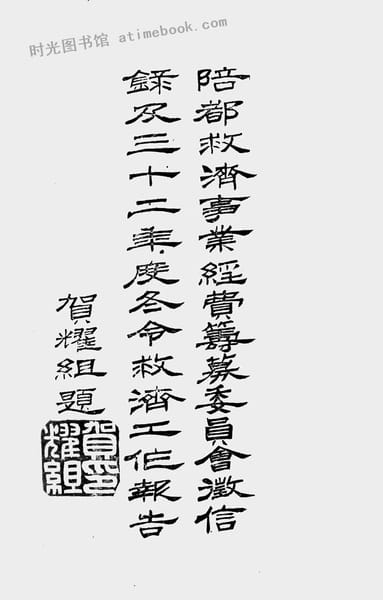 时光图书馆 atimebook.com
陪都救濟事業經費籌募委員會徵信
錄及三十二年度冬令救濟工作報告
賀耀組題
賀耀組印